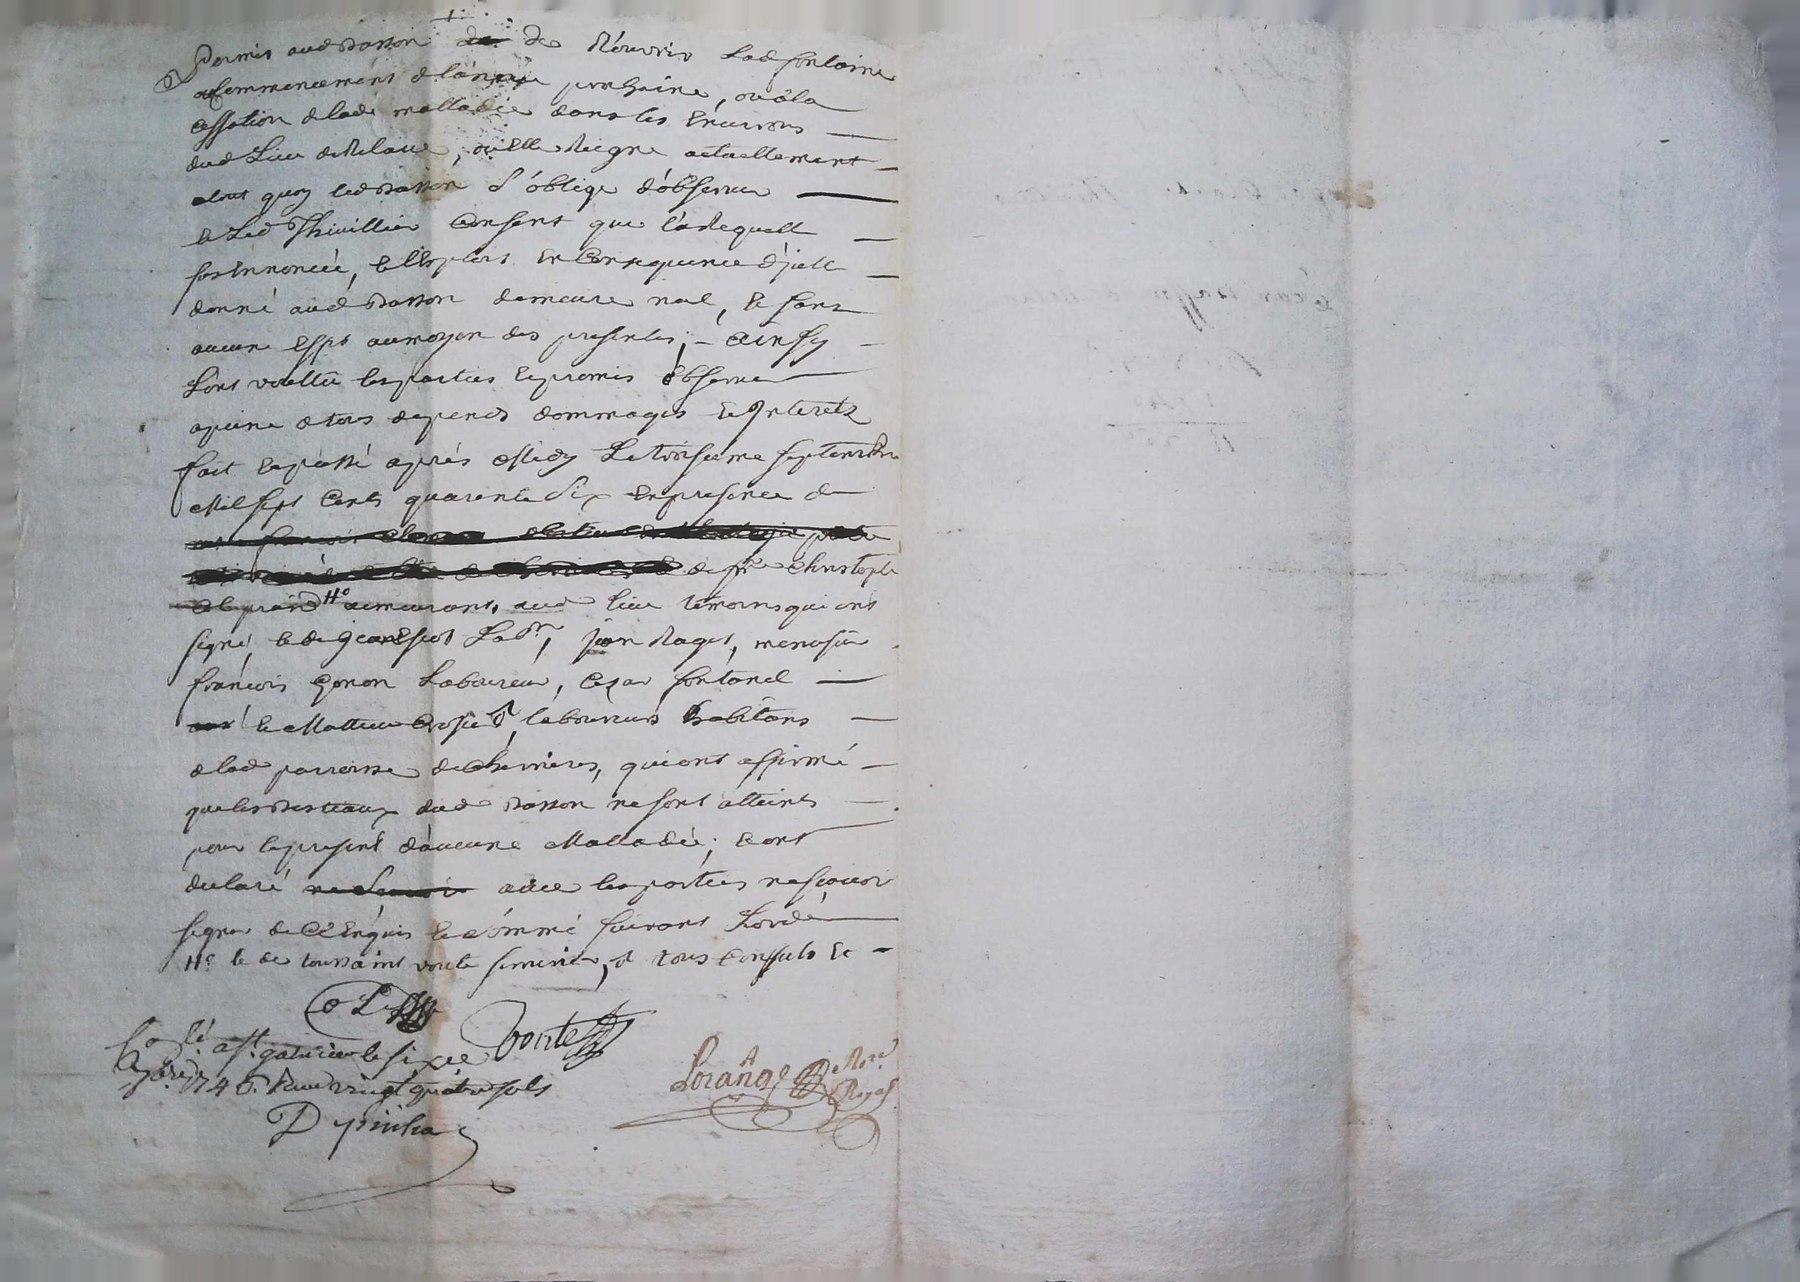 permis aud Basson de Réouvrir Lad fontaine
au Commencement de l'année prochaine, ou a la
Cessation de lade malladie dans les Environs
dud Lieu de Relave, ou Elle Reigne actuellement
a tout quoy led Basson s'oblige d'observer
et Led Thivillier Consent que la Requette
sus Ennoncée, et l'Exploit En Consequence d'jcelle
donné aud Basson demeure nul, et sans
aucun effet au moyen des presentes; ainsy
L'ont voullu les parties et promis observer
a peine de tous depends dommages et Interets
fait et passé aprés Midy Le Septembre
Mil sept Cents quarante Six En presence de
de Sr Christople
Ho demeurant aud lieu témoins qui ont
signé, et de Labr, jean Raget, menusier
françois Gonon Laboureur, Cezar fontanel
et Mattieu laboureurs habitans
de lad parroisse de Chevrieres, qui ont affirmé
que les Bestiaux dud Basson ne sont atteints
pour le present d'aucune Malladie; et ont
declaré avec les parties ne sçavoir
signer de Ce Enquis et sommé suivant L'ordce
Ho et de toussaint voute
voute
Lorange Nore Royal
Colé a st galmier le six
1746. Reçu vingt quatre sols